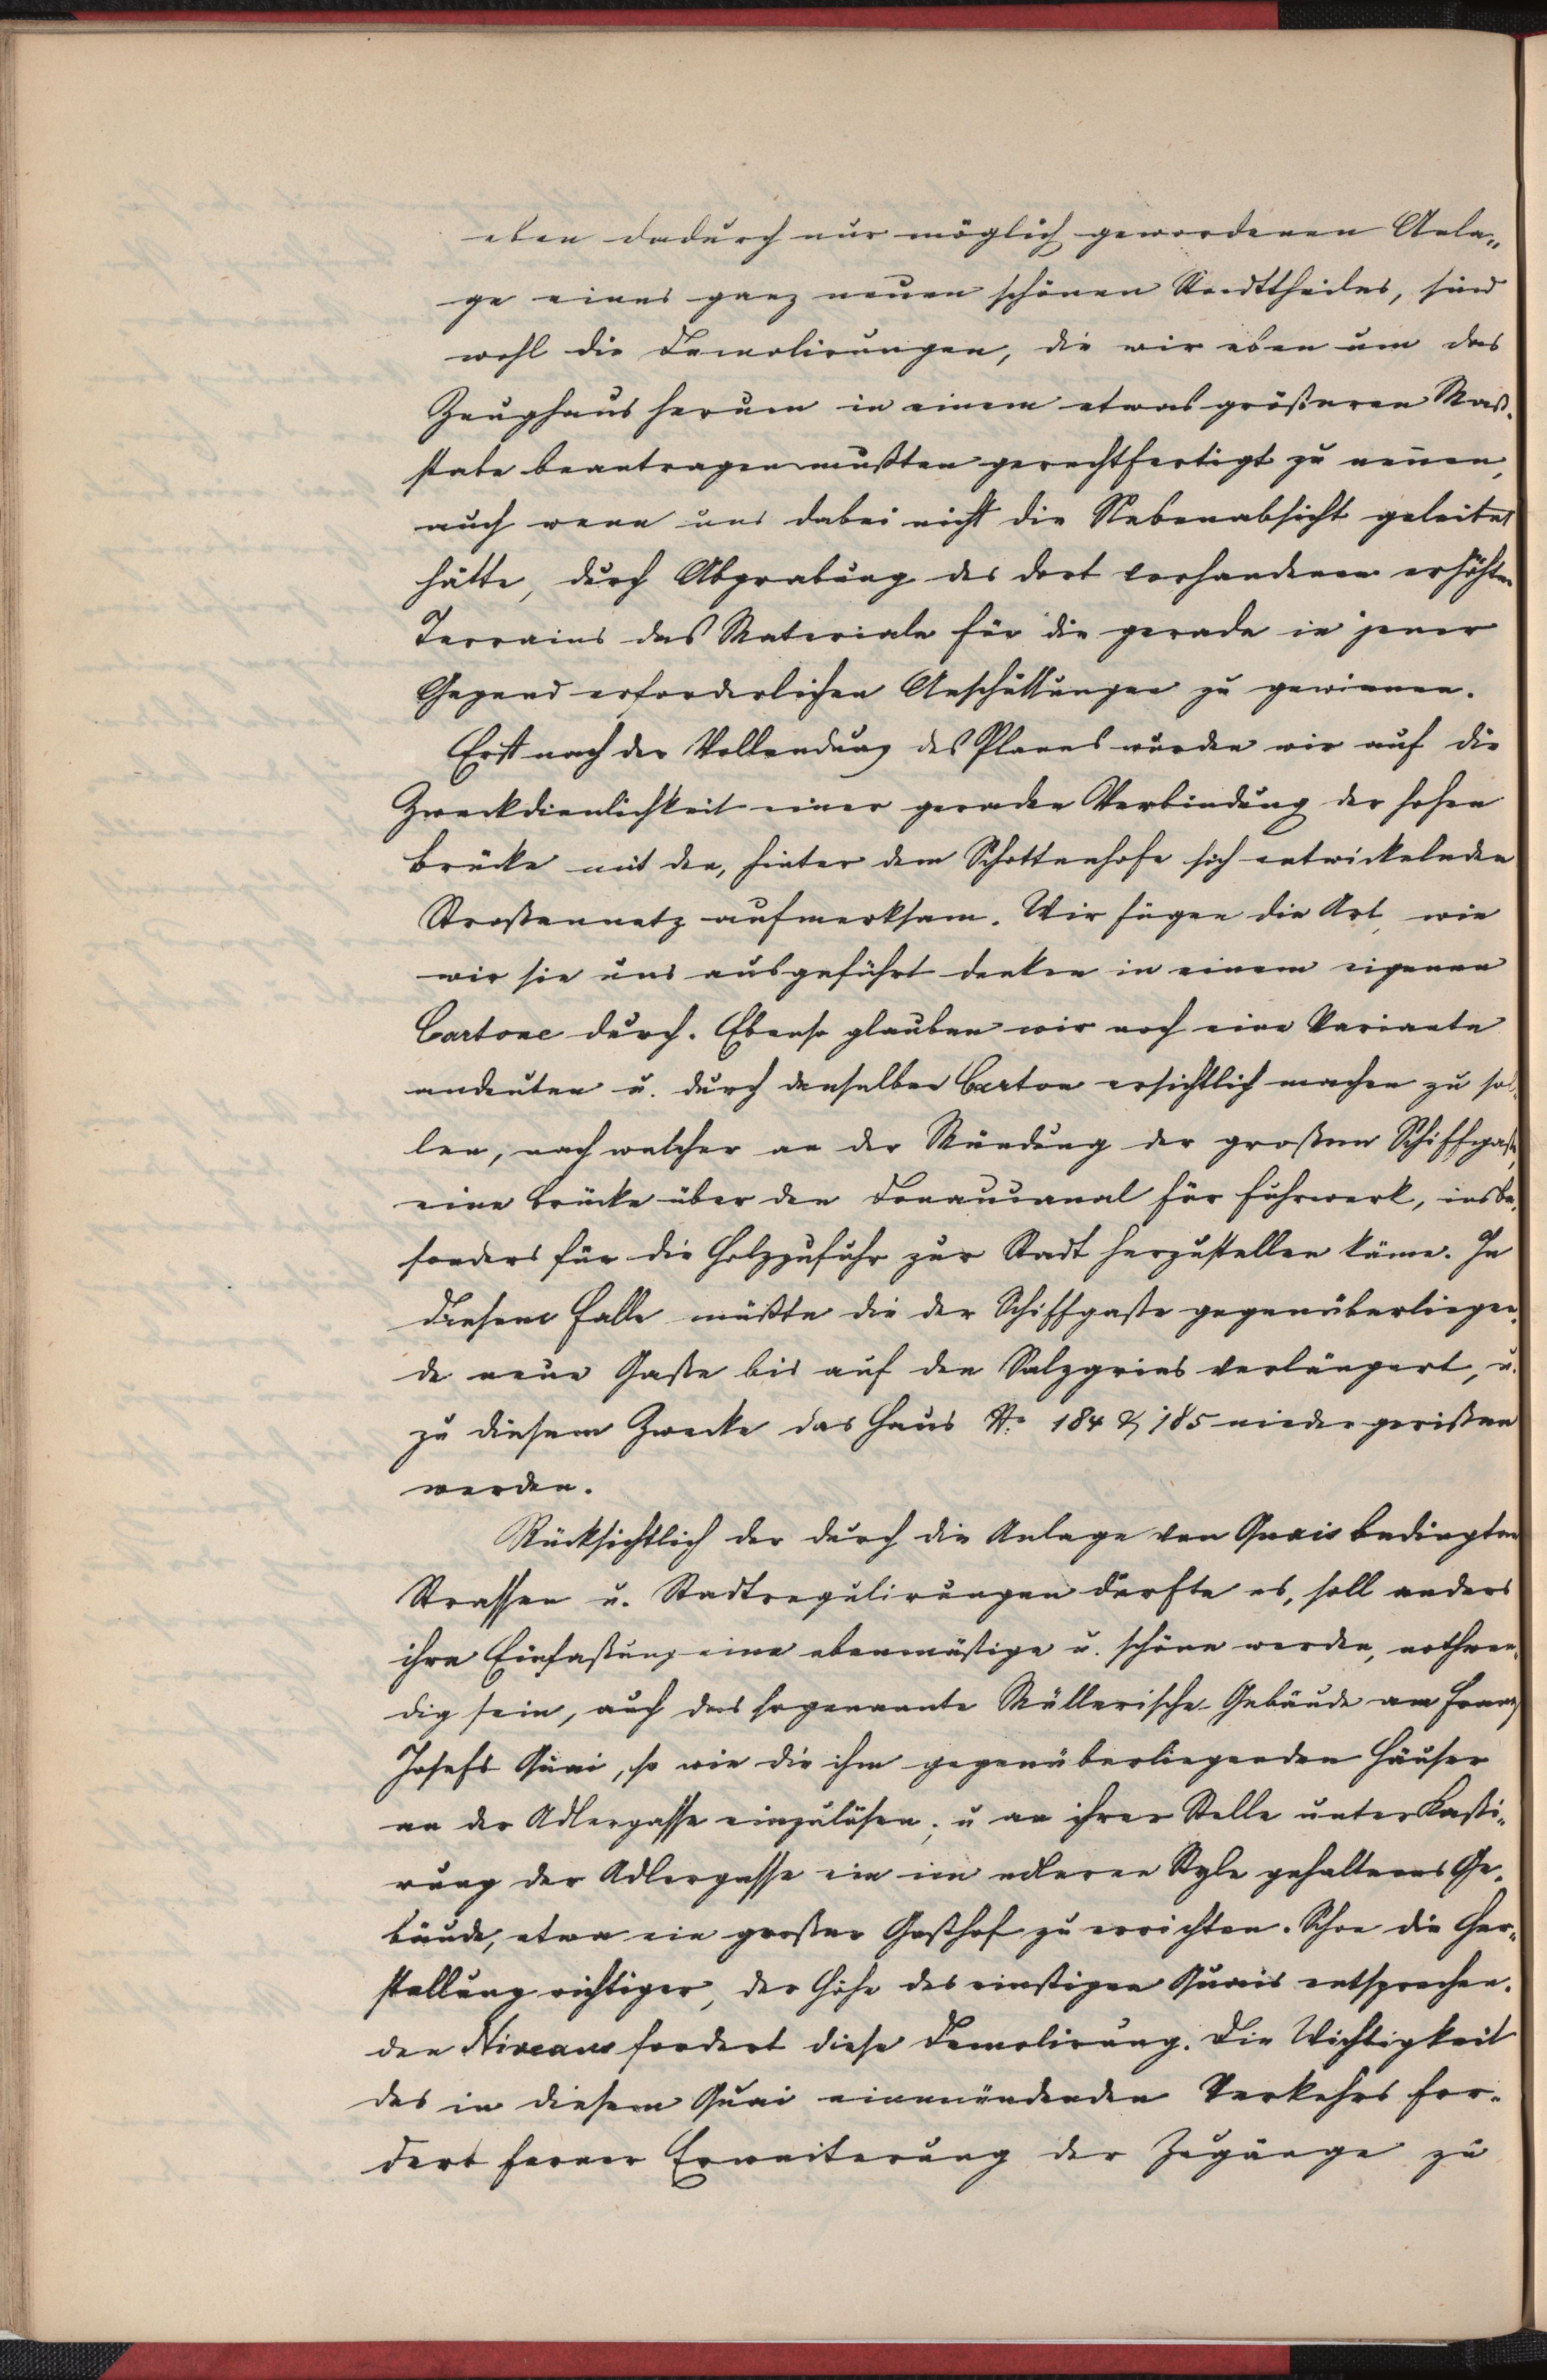 eben dadurch nur möglich gewordenen Anla„
ge eines ganz neuen schönen Stadttheiles, sind
wohl die Demolirungen, die wir eben um das
Zeughaus herum in einem etwas größeren Maß-
stabe beantragen mußten gerechtfertigt zu neñen,
auch wenn uns dabei nicht die Nebenabsicht geleitet
hätte, durch Abgrabung des dort vorhandenen erhöhten
Terrains das Materiale für die gerade in jener
Gegend erforderlichen Anschüttungen zu gewinnen.
Erst nach der Vollendung des Planes wurden wir auf die
Zweckdienlichkeit einer geraden Verbindung der hohen
Brücke mit den, hinter dem Schottenhofe sich entwickelnden
Straßennetz aufmerksam. Wir fügen die Art, wie
wir sie uns ausgeführt denken in einem eigenen
Cartone durch. Ebenso glauben wir noch eine Variante
andeuten u. durch denselben Carton ersichtlich machen zu sol-
len, nach welcher an der Mündung der großen Schiffgaße,
eine Brücke über den Donaucanal für Fuhrwerk, insbe-
sonders für die Holzzufuhr zur Stadt herzustellen käme. In
diesem Falle müßte die der Schiffgaße gegenüberliegen-
de neue Gaße bis auf den Salzgries verlängert, u.
zu diesem Zwecke das Haus No 184 & 185 niedergerißen
werden.
Rücksichtlich der durch die Anlage von Quais bedingten
Strassen u. Stadtregulirungen dürfte es, soll anders
ihre Einfaßung eine ebenmäßige u. schöne werden, nothwen-
dig sein, auch das sogenannte Müllerische Gebäude am Franz
Josefs Quai, so wie die ihm gegenüberliegenden Häuser
an der Adlergasse einzulösen, u an ihrer Stelle unter Kaßi„
rung der Adlergasse ein im edleren Style gehaltenes Ge-
bäude, etwa ein großer Gasthof zu errichten. Schon die Her„
stellung richtiger, der Höhe des einstigen Quais entsprechen-
den Niveaus fordert diese Demolirung. Die Wichtigkeit
des in diesem Quai einmündenden Verkehrs for-
dert ferner Erweiterung der Zugänge zu